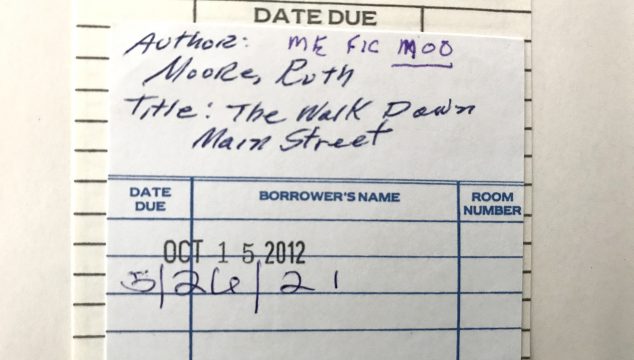 DATE DUE
Author: ME FIC MOO
Moore, Ruth
Title: The Walk Down
Main Street
DATE DUE BORROWER'S NAME ROOM NUMBER
OCT 15 2012
5/26/21